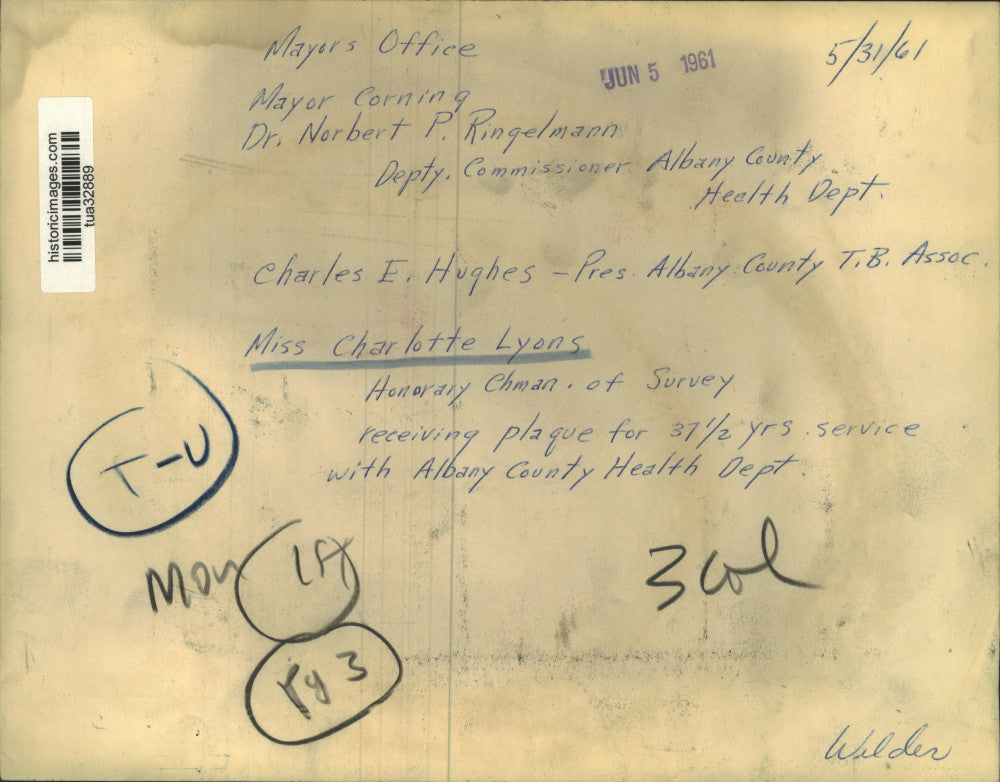 Mayors Office
JUN 5 1961
5/31/61
Mayor Corning
Dr. Norbert P. Ringelmann
Depty. Commissioner Albany County
Health Dept.
Charles E. Hughes - Pres. Albany County T.B. Assoc.
Miss Charlotte Lyons
Honorary Chman. of Survey
receiving plaque for 37 1/2 yrs. service
with Albany County Health Dept.
historicimages.com
tua32889
T-U
Mon
3 col
Pg 3
Wilder